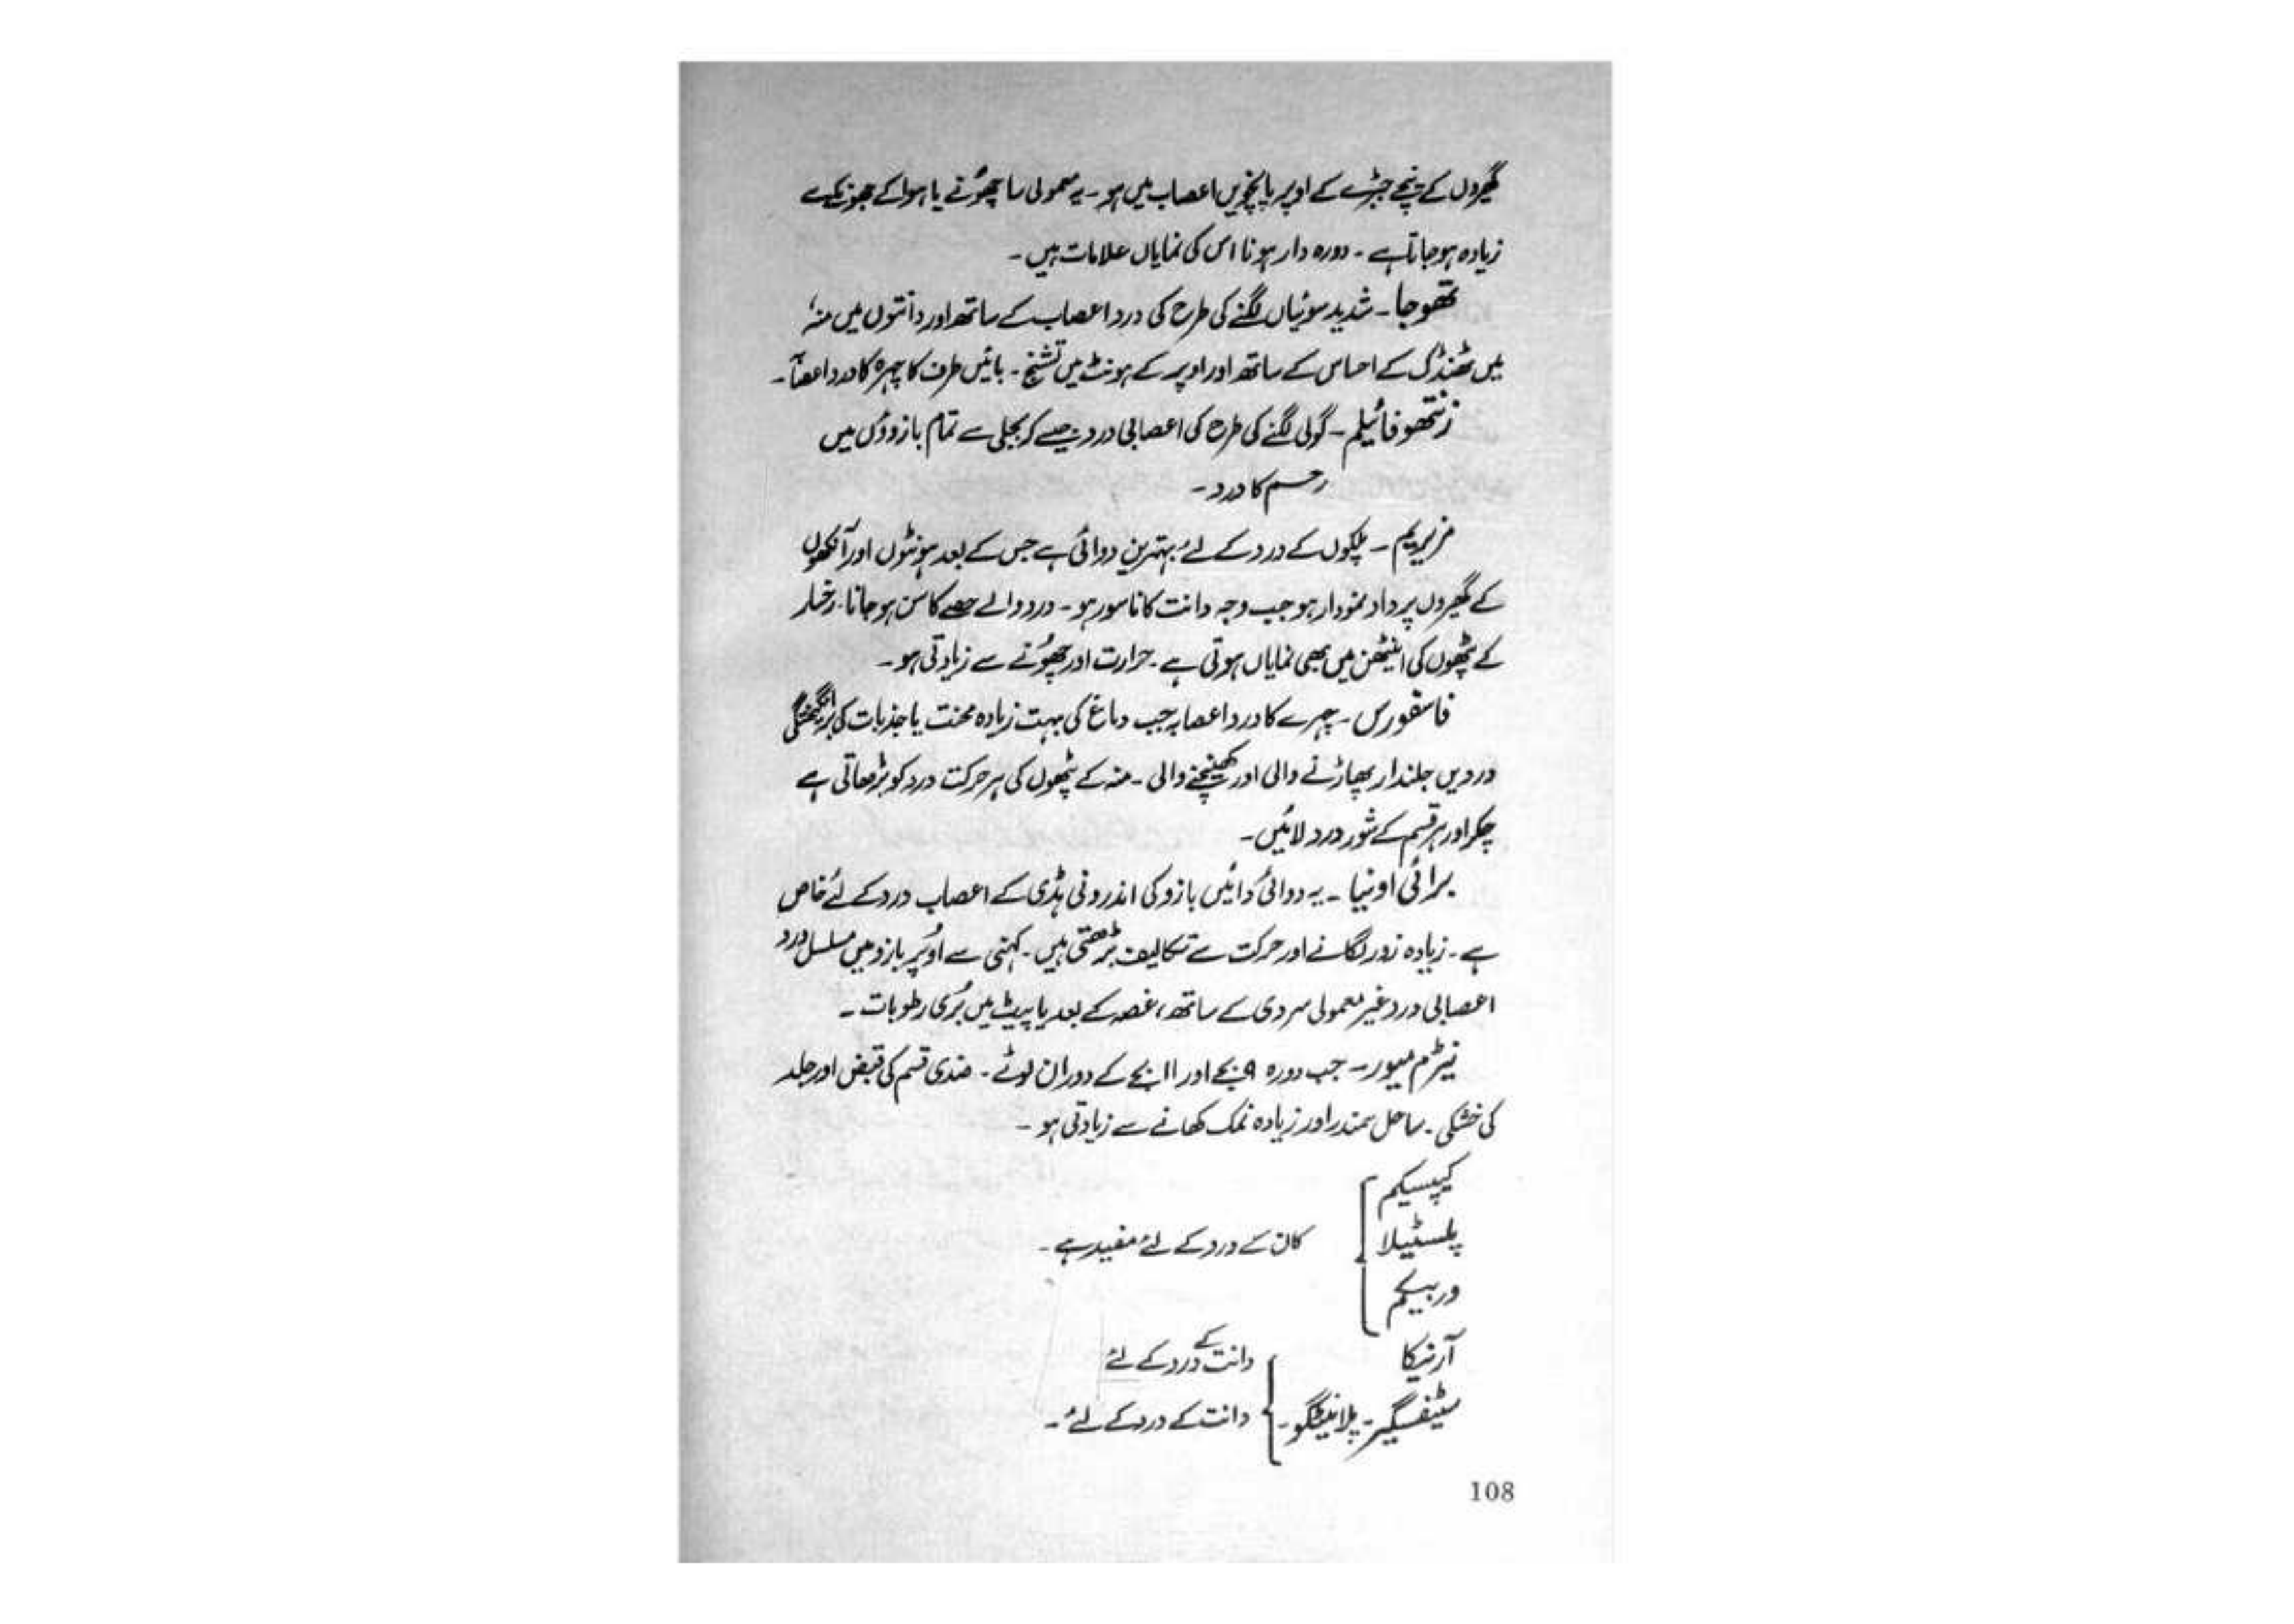 گھیروں کے نیچے جبڑے کے اوپر پانچویں اعصاب میں ہو ۔ یہ معمولی سا چھُونے یا ہوا کے جھونکے سے
زیادہ ہو جاتا ہے ۔ دورہ دار ہونا اس کی نمایاں علامات ہیں ۔
تھوجا ۔ شدید سوئیاں لگنے کی طرح کی درد اعصاب کے ساتھ اور دانتوں میں منہ
میں ٹھنڈک کے احساس کے ساتھ اور اوپر کے ہونٹ میں تشنج ۔ بائیں طرف کا چہرہ کا درد اعصاب ۔
زنتھوفائیلم ۔ گولی لگنے کی طرح کی اعصابی درد جیسے کہ بجلی سے تمام بازوؤں میں
رحم کا درد ۔
مزیریم ۔ پلکوں کے درد کے لئے بہترین دوائی ہے جس کے بعد ہونٹوں اور آنکھوں
کے گھیروں پر داد نمودار ہو جب وجہ دانت کا ناسور ہو ۔ درد والے حصے کا سن ہو جانا ۔ رخسار
کے پٹھوں کی اینٹھن میں بھی نمایاں ہوتی ہے ۔ حرارت اور چھُونے سے زیادتی ہو ۔
فاسفورس ۔ چہرے کا درد اعصابہ جب دماغ کی بہت زیادہ محنت یا جذبات کی برانگیختگی
دردیں جلندار پھاڑنے والی اور کھینچنے والی ۔ منہ کے پٹھوں کی ہر حرکت درد کو بڑھاتی ہے
چکر اور ہر قسم کے شور درد لائیں ۔
برائی اونیا ۔ یہ دوائی دائیں بازو کی اندرونی ہڈی کے اعصاب درد کے لئے خاص
ہے ۔ زیادہ زور لگانے اور حرکت سے تکالیف بڑھتی ہیں ۔ کہنی سے اُوپر بازو میں مسلسل درد
اعصابی درد غیر معمولی سردی کے ساتھ ، غصہ کے بعد یا پیٹ میں بُری رطوبات ۔
نیٹرم میور ۔ جب دورہ ۹ بجے اور ۱۱ بجے کے دوران لوٹے ۔ ضدی قسم کی قبض اور جلد
کی خشکی ۔ ساحل سمندر اور زیادہ نمک کھانے سے زیادتی ہو ۔
کیپسیکم
پلسٹیلا
کان کے درد کے لئے مفید ہے ۔
وربیسکم
آرنیکا
دانت کے درد کے لئے
سٹیفسیگیر ۔ پلانٹیگو ۔
دانت کے درد کے لئے ۔
108